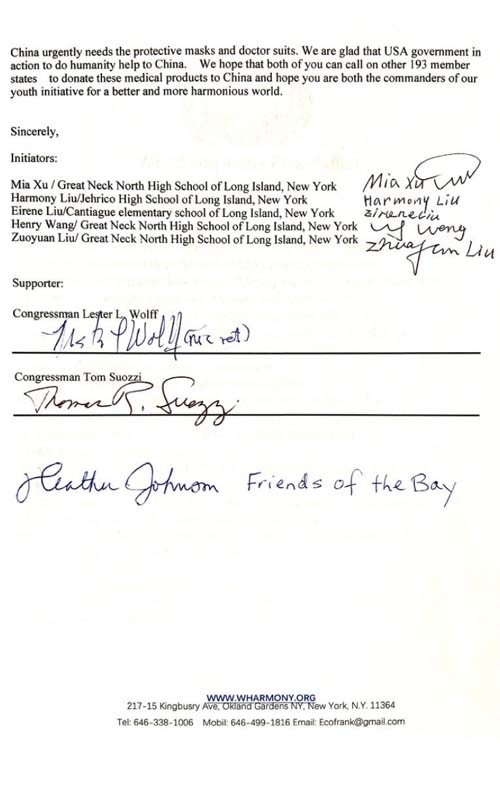 China urgently needs the protective masks and doctor suits. We are glad that USA government in
action to do humanity help to China. We hope that both of you can call on other 193 member
states to donate these medical products to China and hope you are both the commanders of our
youth initiative for a better and more harmonious world.
Sincerely,
Initiators:
Mia Xu / Great Neck North High School of Long Island, New York
Mia Xu
Harmony Liu/Jehrico High School of Long Island, New York
Harmony Liu
Eirene Liu/Cantiague elementary school of Long Island, New York
Henry Wang/ Great Neck North High School of Long Island, New York
Zuoyuan Liu/ Great Neck North High School of Long Island, New York
Liu
Supporter:
Congressman Lester L. Wolff
Wolff
Congressman Tom Suozzi
Thomas R. Suozzi
Heather Johnson Friends of the Bay
WWW.WHARMONY.ORG
217-15 Kingbusry Ave, Okland Gardens NY, New York, N.Y. 11364
Tel: 646-338-1006 Mobil: 646-499-1816 Email: Ecofrank@gmail.com